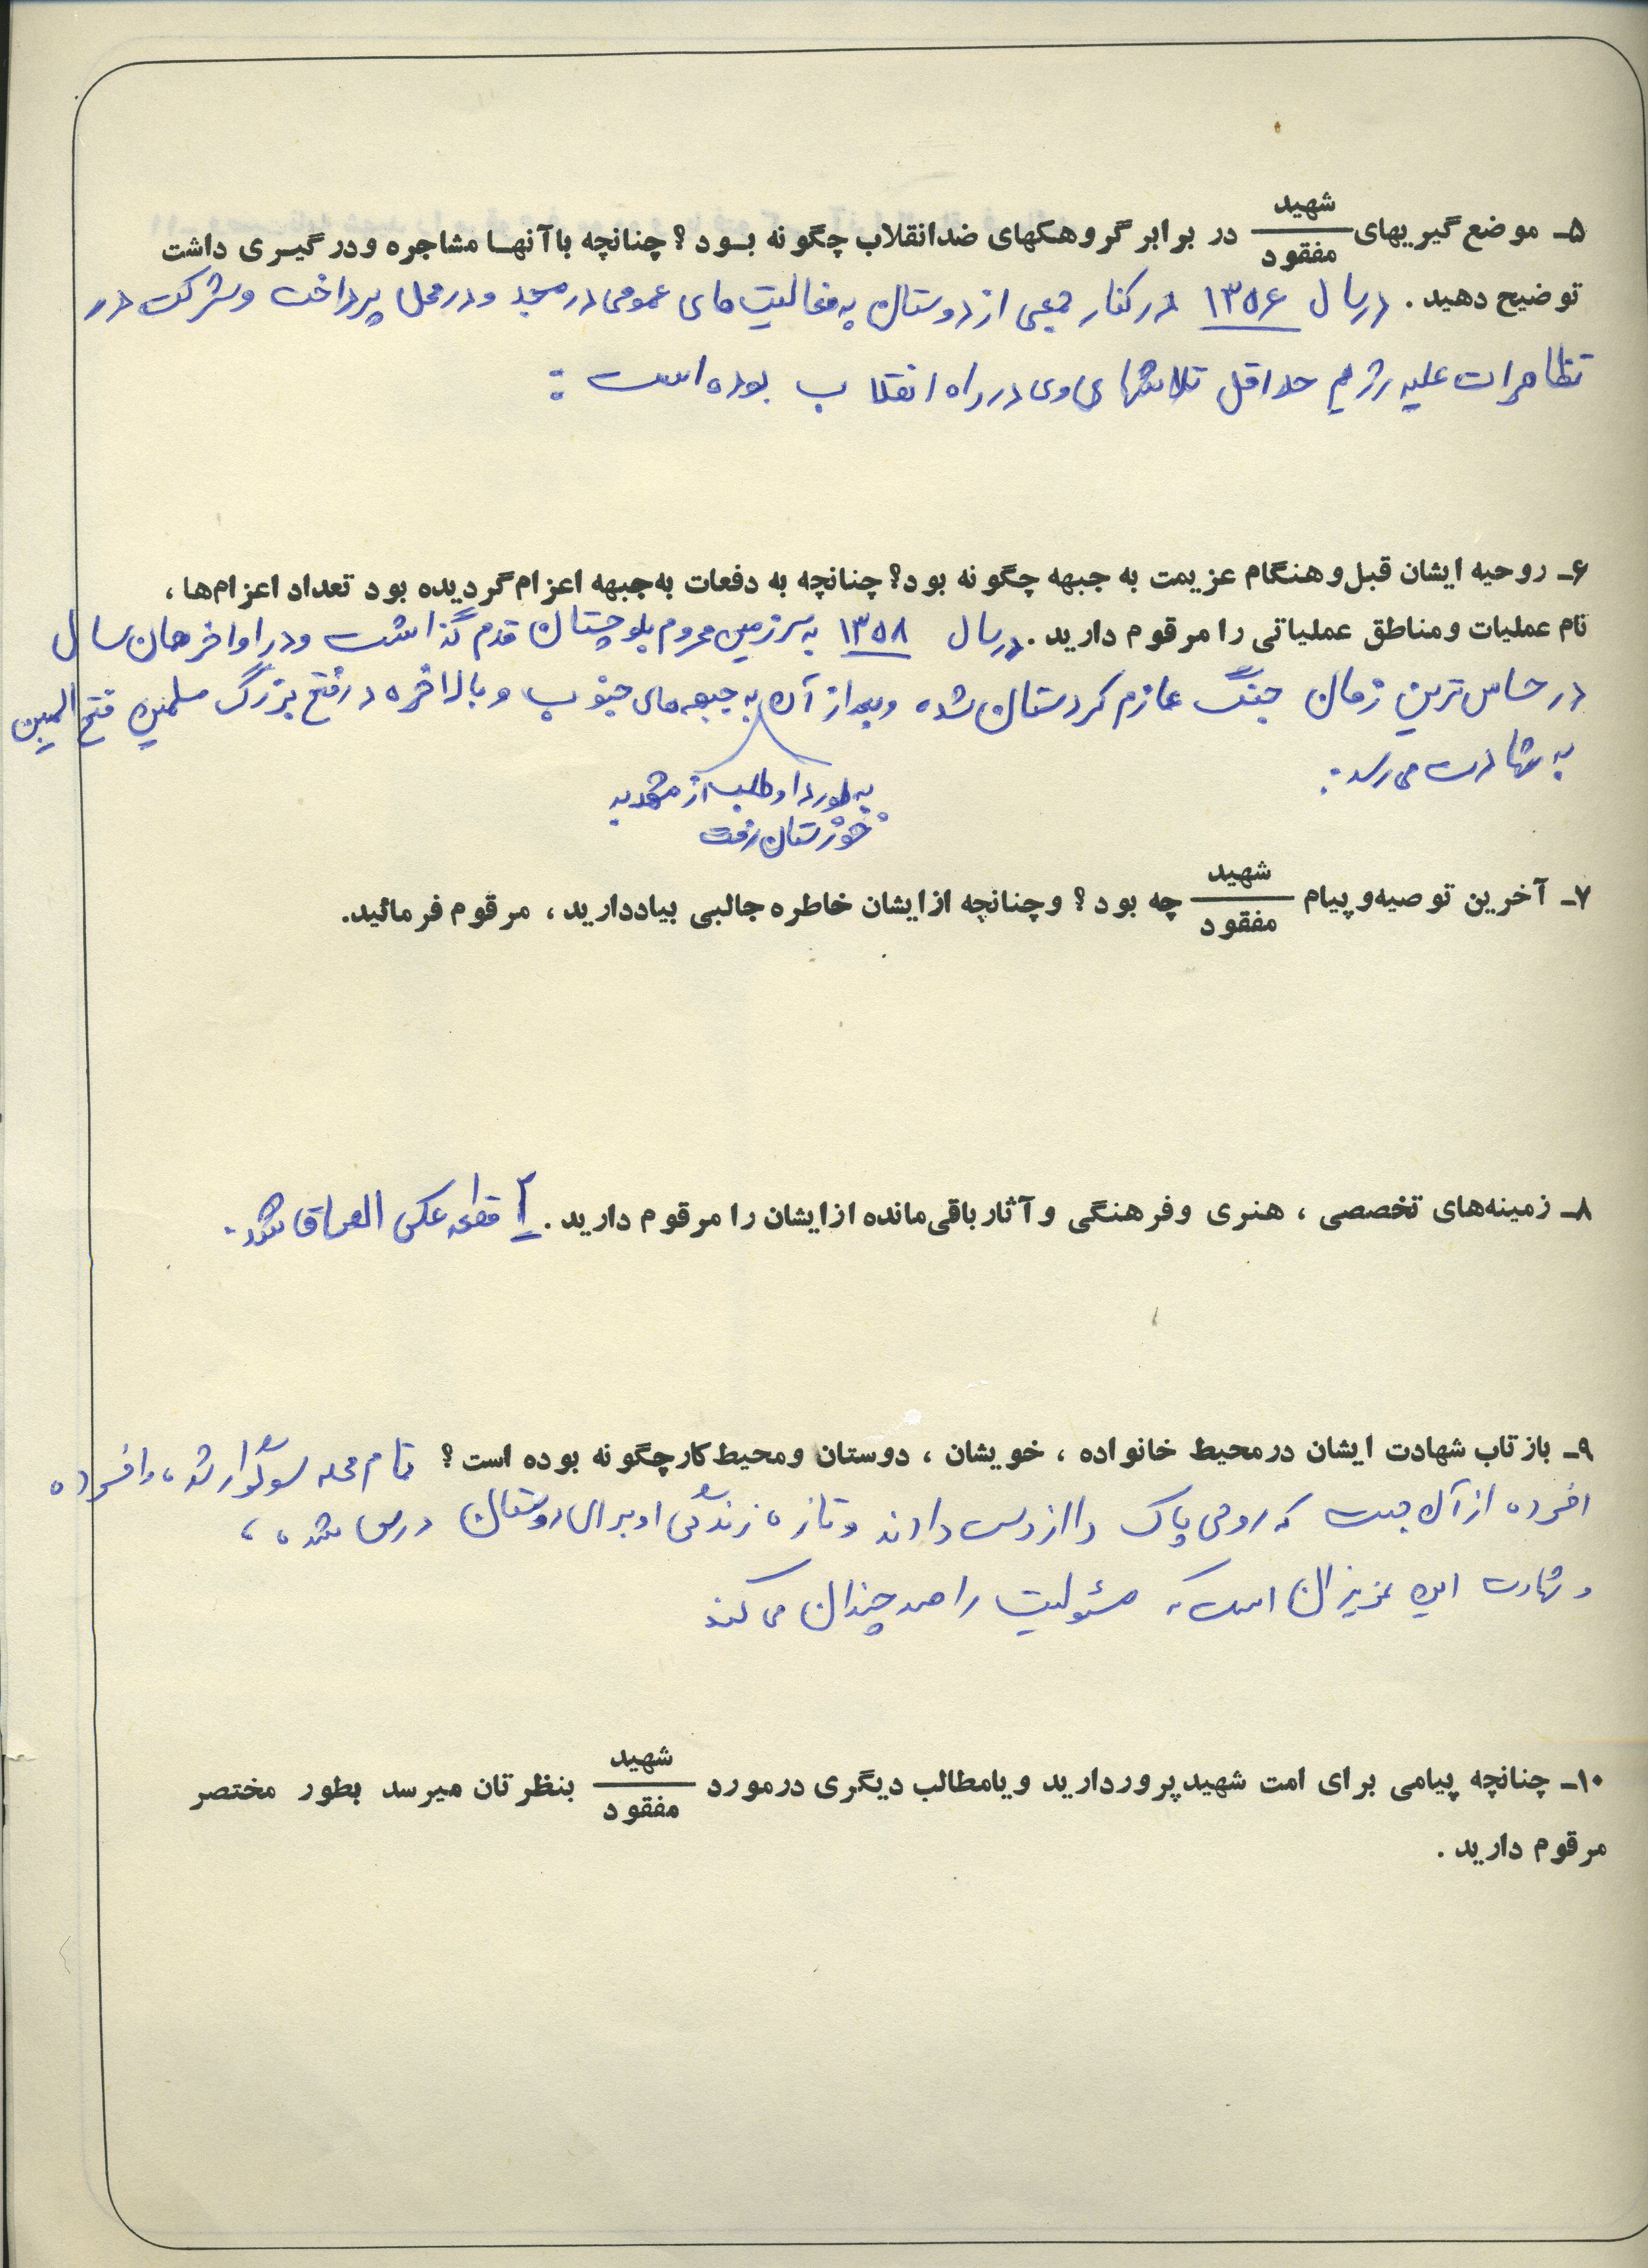 ۵ـ موضع گیریهای شهید / مفقود در برابر گروهکهای ضدانقلاب چگونه بود؟ چنانچه باآنها مشاجره ودرگیری داشت
توضیح دهید. درسال ۱۳۵۶ در کنار جمعی از دوستان به فعالیت های عمومی در مسجد و در محل پرداخت و شرکت در
تظاهرات علیه رژیم حداقل تلاشهای وی در راه انقلاب بوده است:
۶ـ روحیه ایشان قبل وهنگام عزیمت به جبهه چگونه بود؟ چنانچه به دفعات به جبهه اعزام گردیده بود تعداد اعزام‌ها،
نام عملیات ومناطق عملیاتی را مرقوم دارید. درسال ۱۳۵۸ به سرزمین محروم بلوچستان قدم گذاشت و در اواخر همان سال
در حساس ترین زمان جنگ عازم کردستان شده و بعد از آن به جبهه های جنوب و بالاخره در فتح بزرگ مسلمین فتح المبین
به شهادت می رسد.
به طور داوطلب از مشهد به
خوزستان رفت
۷ـ آخرین توصیه وپیام شهید / مفقود چه بود؟ وچنانچه ازایشان خاطره جالبی بیاددارید، مرقوم فرمائید.
۸ـ زمینه‌های تخصصی، هنری وفرهنگی وآثار باقی‌مانده ازایشان را مرقوم دارید. ۲ قطعه عکس الصاق شود.
۹ـ بازتاب شهادت ایشان درمحیط خانواده، خویشان، دوستان ومحیط کار چگونه بوده است؟ تمام محله سوگوار شد، و افسرده
افسرده از آن جهت که روحی پاک را از دست دادند و تازه زندگی او برای دوستان درس شده،
و شهادت این عزیزان است که مسئولیت را صد چندان می کند
۱۰ـ چنانچه پیامی برای امت شهیدپروردارید ویامطالب دیگری درمورد شهید / مفقود بنظرتان میرسد بطور مختصر
مرقوم دارید.